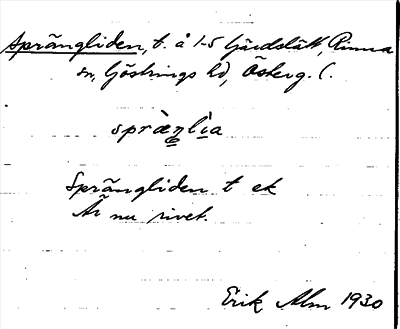 Sprängliden, t. å 1-5 Gärdslätt, Rinna
sn, Göstrings hd, Österg. l.
spræ̀ŋlìa
Sprängliden t ek
Är nu rivet.
Erik Alm 1930